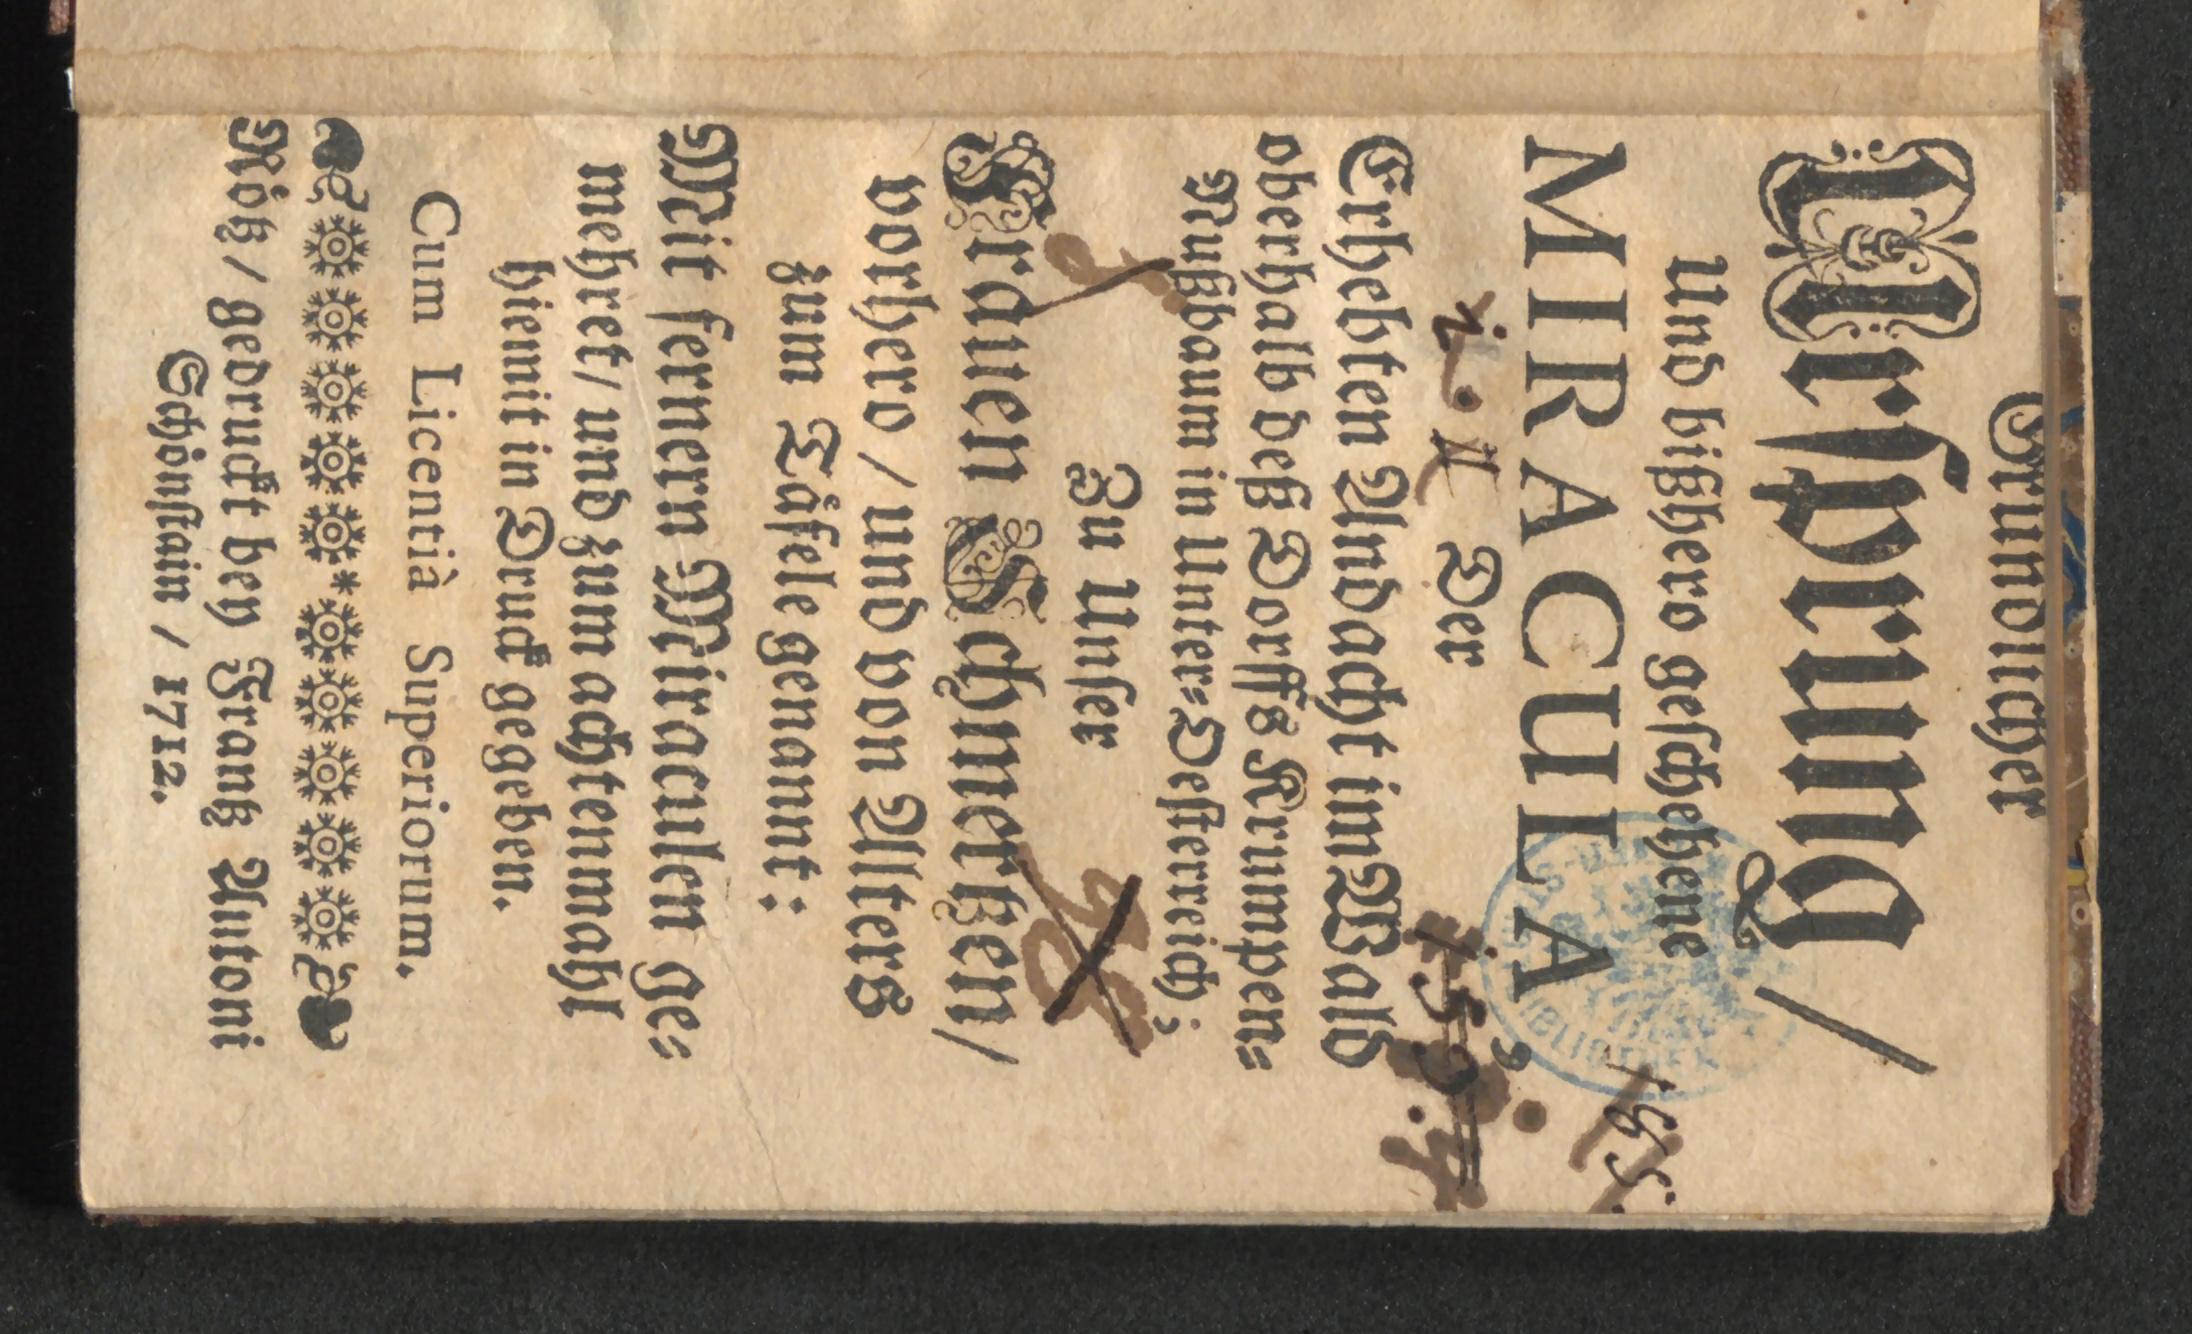 Gründlicher
Ursprung/
Und bißhero geschehene
MIRACULA,
Der
Erhebten Andacht im Wald
oberhalb deß Dorffs Krumpen-
Nußbaum in Unter-Oesterreich;
Zu Unser
Frauen Schmertzen/
vorhero / und von Alters
zum Täfele genannt:
Mit fernern Miraculen ge-
mehret/ und zum achtenmahl
hiemit in Druck gegeben.
Cum Licentià Superiorum.
Rötz / gedruckt bey Frantz Antoni
Schönstain / 1712.